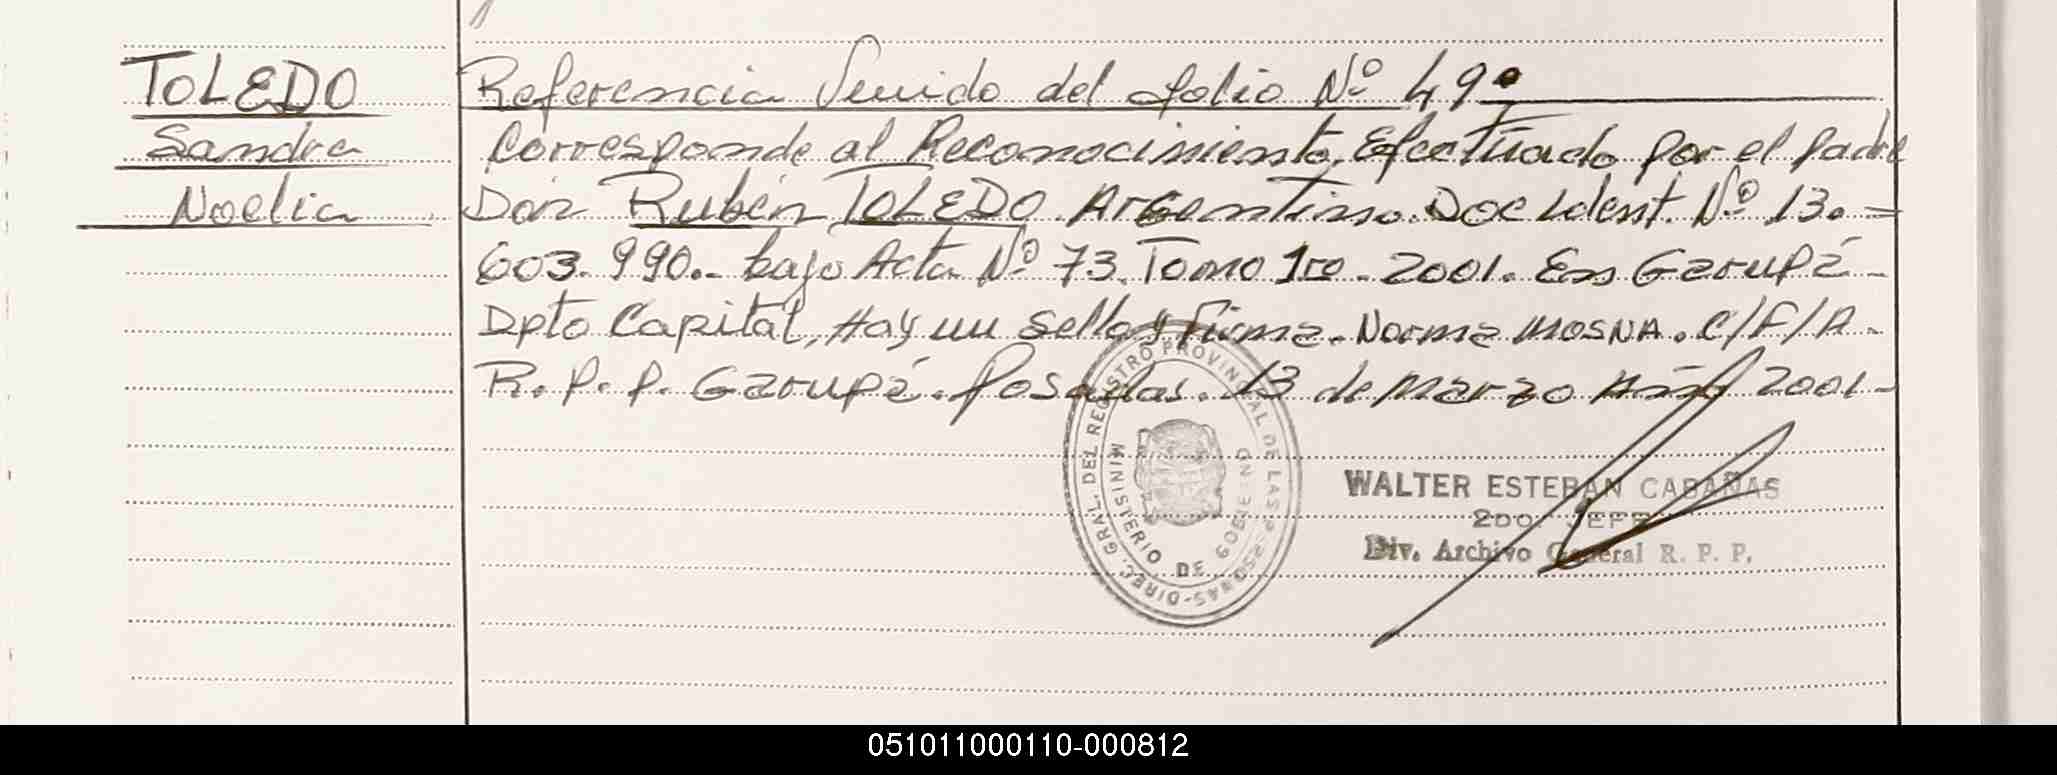 TOLEDO
Sandra
Noelia
Referencia Venido del folio Nº 49.
Corresponde al Reconocimiento, Efectuado por el padre
Don Rubén TOLEDO. Argentino. Doc Ident. Nº 13.-
603.990.- bajo Acta Nº 73. Tomo 1ro. 2001. En Garupá-
Dpto Capital, Hay un Sello y Firma. Norma MOSNA. C/F/A.
R.P.P. Garupá. Posadas. 13 de Marzo Año 2001-
DIREC. GRAL. DEL REGISTRO PROVINCIAL DE LAS PERSONAS-
MINISTERIO DE GOBIERNO
WALTER ESTEBAN CABAÑAS
2DO. JEFE
Div. Archivo General R. P. P.
051011000110-000812